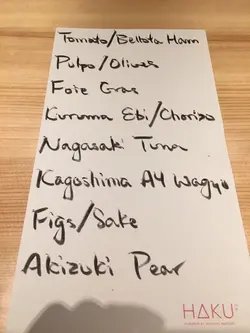 Tomato/Bellota Ham
Pulpo/Olives
Foie Gras
Kuruma Ebi/Chorizo
Nagasaki Tuna
Kagoshima A4 Wagyu
Figs/Sake
Akizuki Pear
HAKU